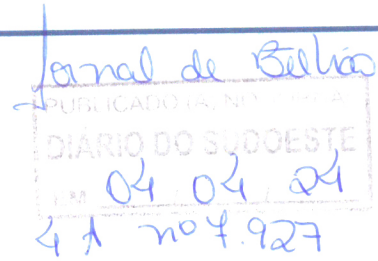 Jornal de Beltrão
PUBLICADO(A) NO
DIÁRIO DO SUDOESTE
EM 04 / 04 / 24
nº 7.927